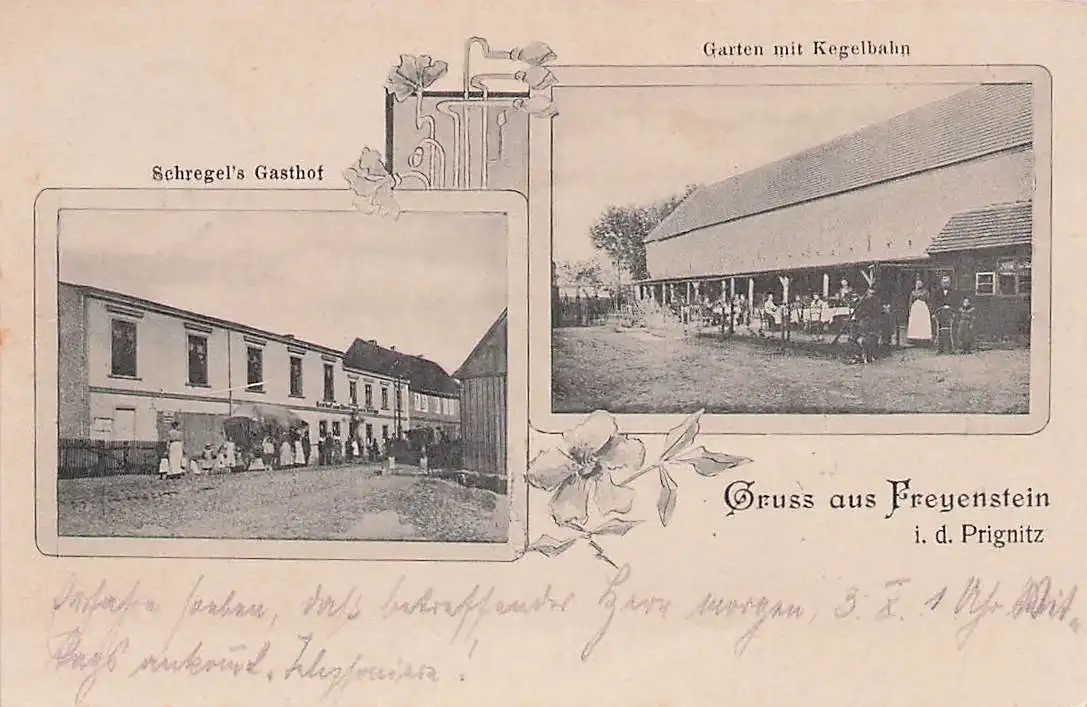 Garten mit Kegelbahn
Schregel's Gasthof
Gruss aus Freyenstein
i. d. Prignitz
Erfahre soeben, daß betreffender Herr morgen, 3. X. 1 Uhr Mit-
tags ankomt. Telephoniere!